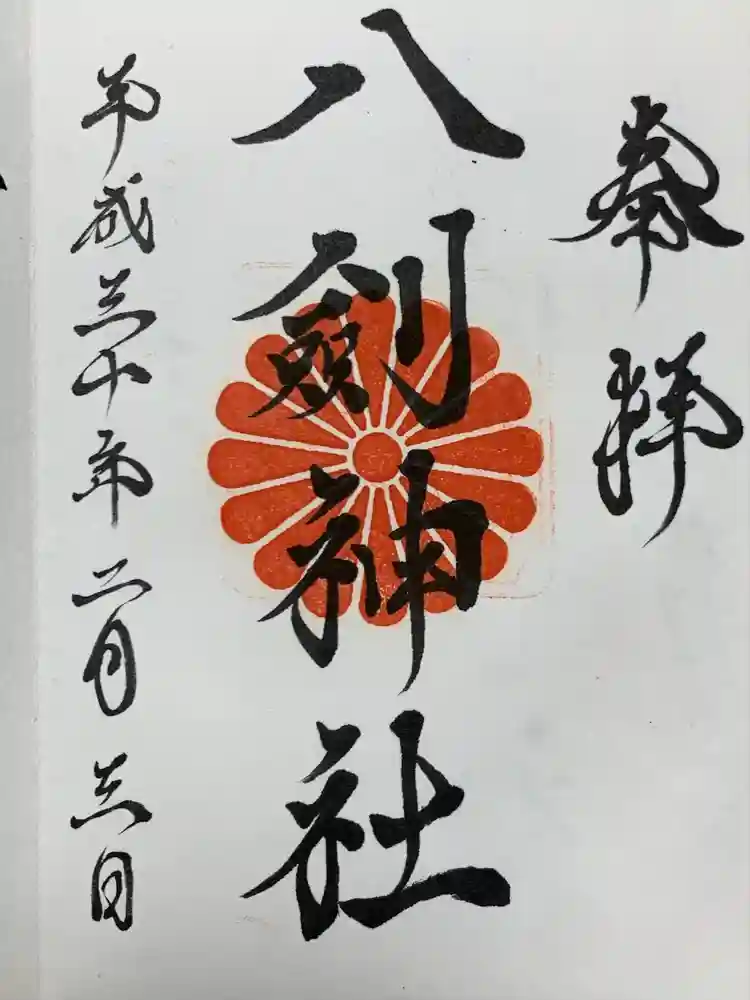 奉拝
八劍神社
平成三十年二月三日